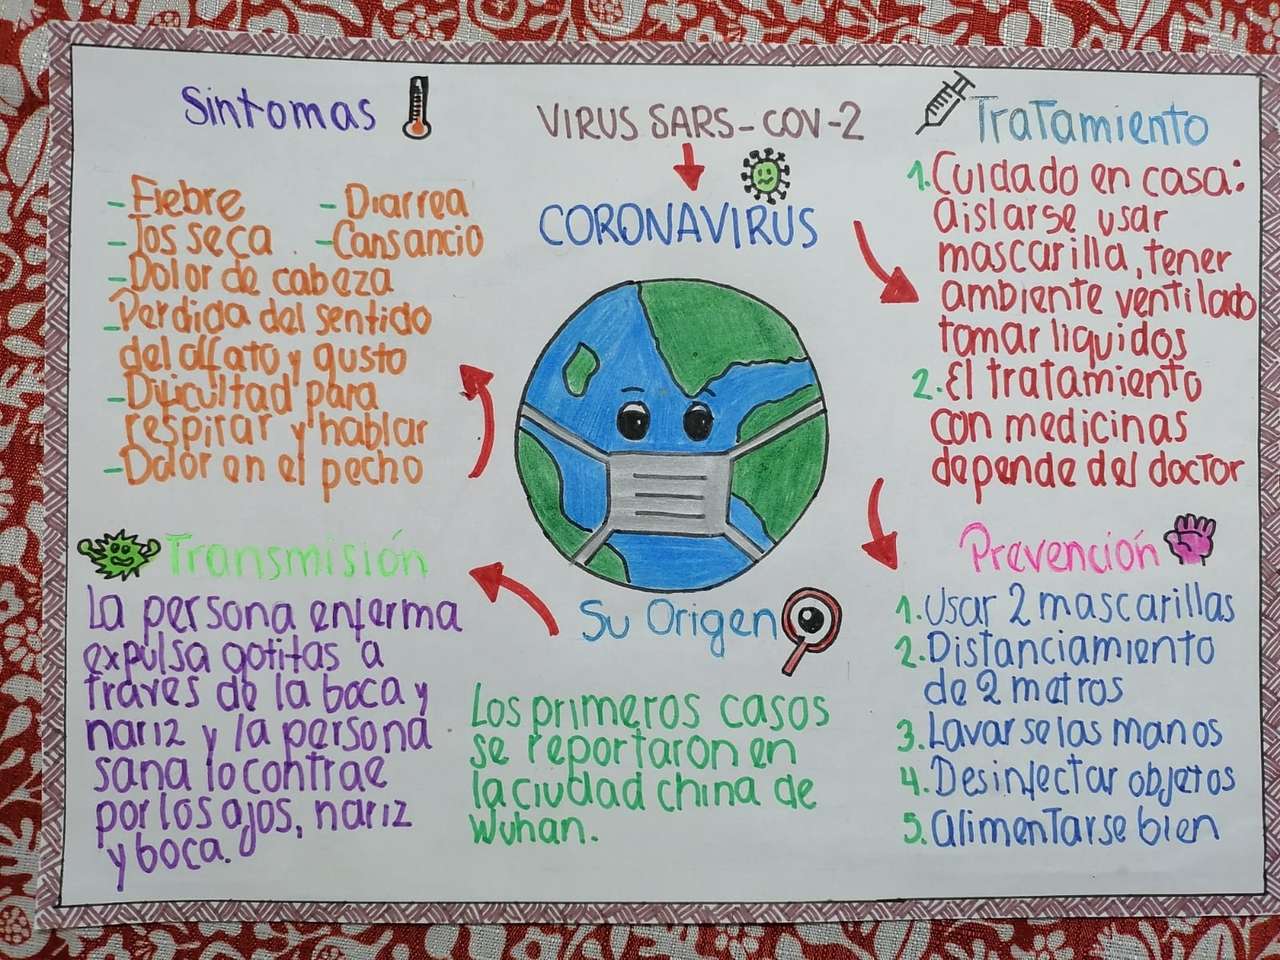 Sintomas
- Fiebre
- Diarrea
- Tos seca
- Cansancio
- Dolor de cabeza
- Perdida del sentido
del olfato y gusto
- Dificultad para
respirar y hablar
- Dolor en el pecho
VIRUS SARS-COV-2
CORONAVIRUS
Tratamiento
1. Cuidado en casa:
aislarse, usar
mascarilla, tener
ambiente ventilado
tomar liquidos
2. El tratamiento
con medicinas
depende del doctor
Transmisión
La persona enferma
expulsa gotitas a
través de la boca y
nariz y la persona
sana lo contrae
por los ojos, nariz
y boca.
Su Origen
Los primeros casos
se reportaron en
la ciudad china de
Wuhan.
Prevención
1. Usar 2 mascarillas
2. Distanciamiento
de 2 metros
3. Lavarse las manos
4. Desinfectar objetos
5. alimentarse bien